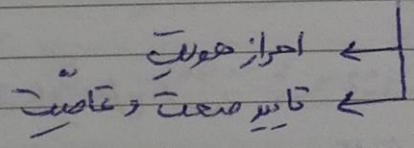 احراز هویت
تایید صحت و تمامیّت